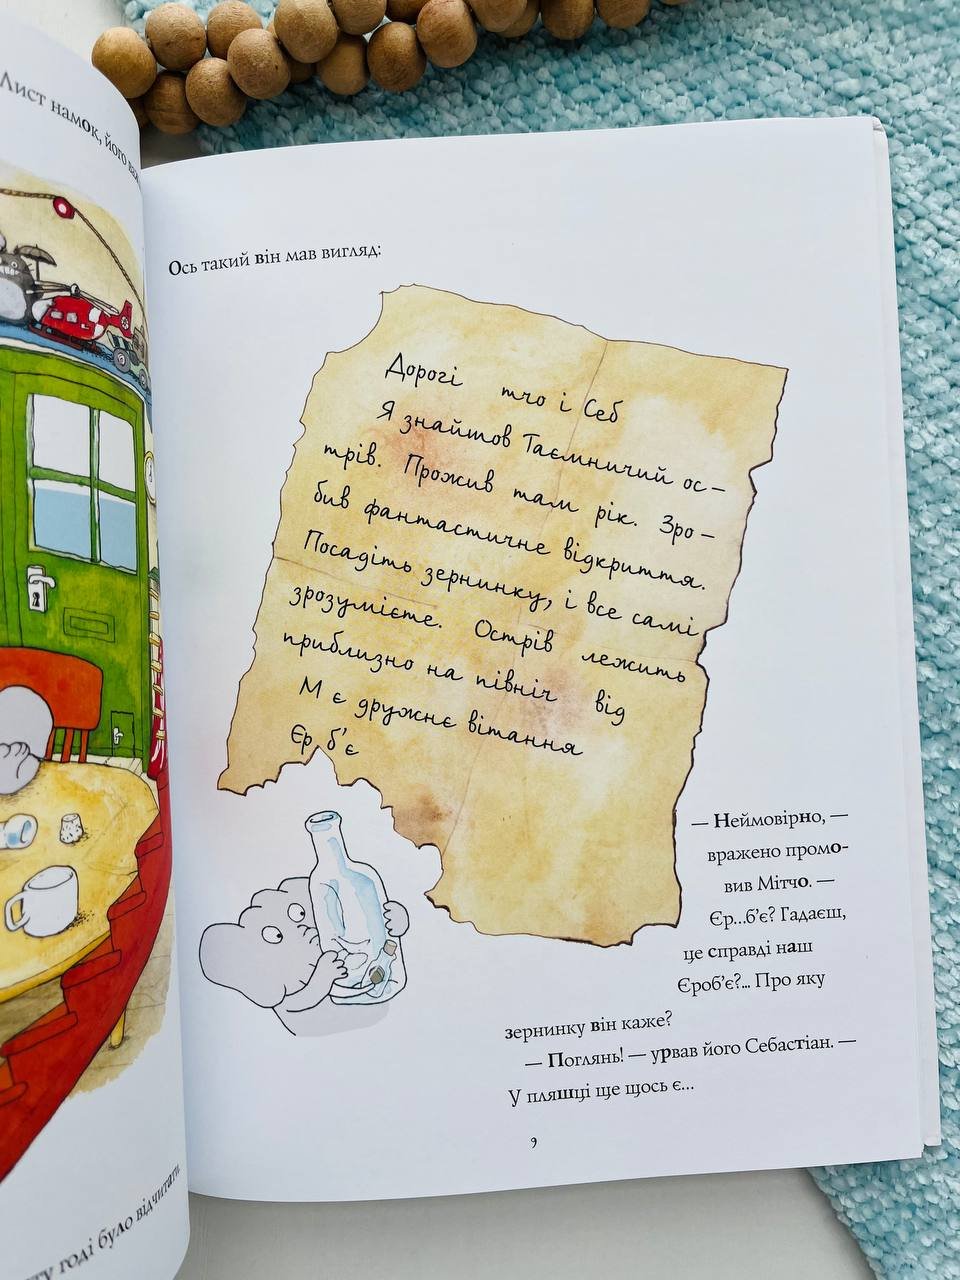 Лист намок, його
ту годі було відчитати.
Ось такий він мав вигляд:
Дорогі тчо і Себ
Я знайшов Таємничий ос–
трів. Прожив там рік. Зро–
бив фантастичне відкриття.
Посадіть зернинку, і все самі
зрозумієте. Острів лежить
приблизно на північ від
М є дружнє вітання
Єр б'є
— Неймовірно, —
вражено промо-
вив Мітчо. —
Єр...б'є? Гадаєш,
це справді наш
Єроб'є?... Про яку
зернинку він каже?
— Поглянь! — урвав його Себастіан. —
У пляшці ще щось є...
9